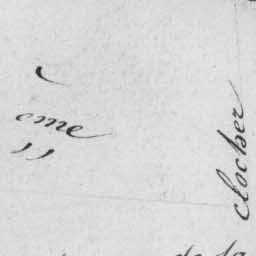 eme
clocher
de la